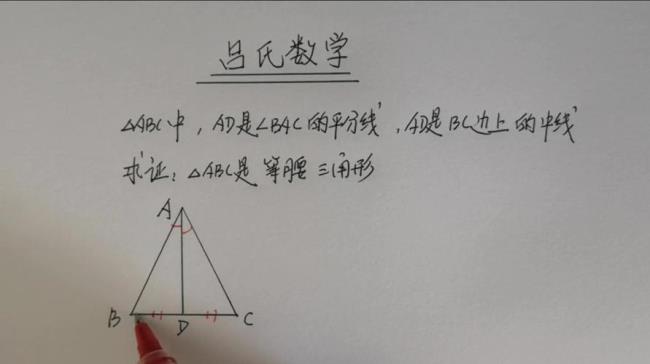 吕氏数学
△ABC中，AD是∠BAC的平分线，AD是BC边上的中线
求证：△ABC是等腰三角形
A
B D C